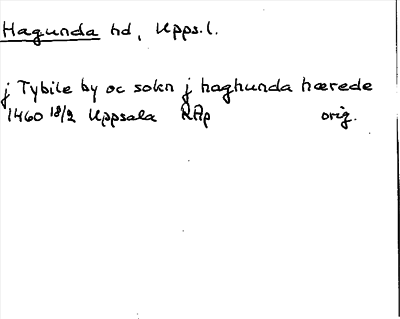 Hagunda hd, Upps.l.
j Tybile by oc sokn j haghunda hærede
1460 18/2 Uppsala RAp orig.